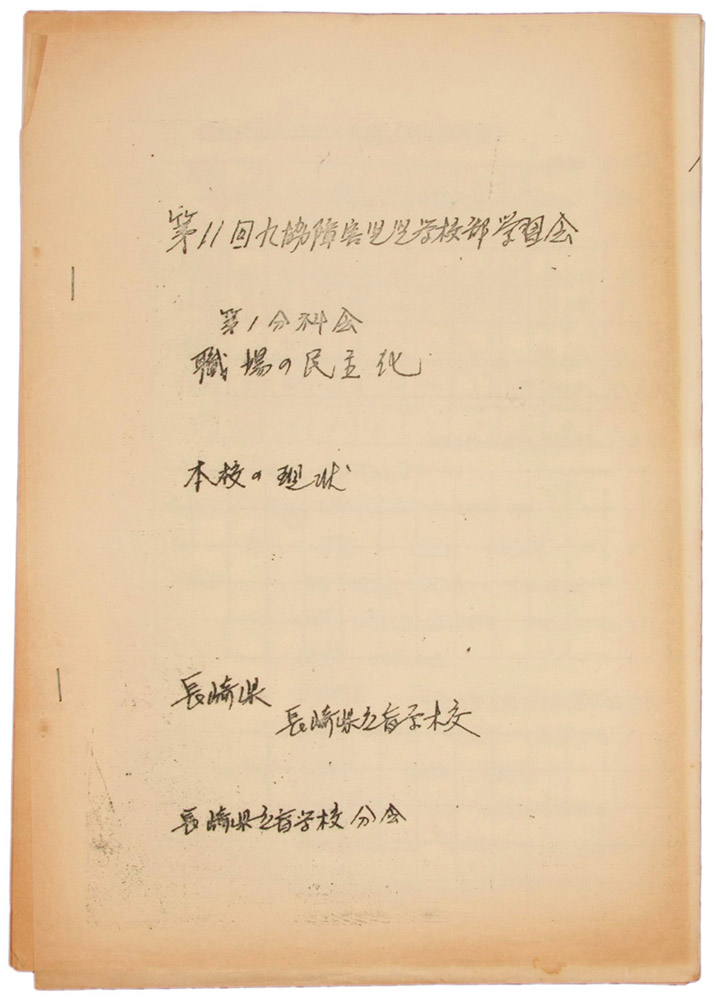 第11回九協障害児学校部学習会
第1分科会
職場の民主化
本校の現状
長崎県
長崎県立盲学校
長崎県立盲学校分会